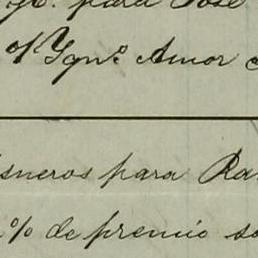 para José
Ygn.º Amor
sneros para Ra
% de premio so